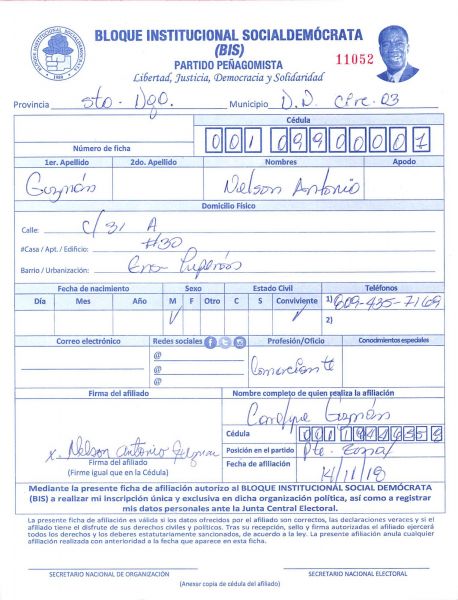 BLOQUE INSTITUCIONAL SOCIALDEMÓCRATA
(BIS)
PARTIDO PEÑAGOMISTA
11052
Libertad, Justicia, Democracia y Solidaridad
Provincia Sto. Dgo. Municipio D.N. Circ. 03
Cédula
Número de ficha
1er. Apellido 2do. Apellido Nombres Apodo
Guzmán Nelson Antonio
Domicilio Físico
Calle: C/31 A
#Casa / Apt. / Edificio: #30
Barrio / Urbanización:
Fecha de nacimiento Sexo Estado Civil Teléfonos
Día Mes Año M F Otro C S Conviviente 1) 809-435-7169
2)
Correo electrónico Redes sociales Profesión/Oficio Conocimientos especiales
@
@
@
Comerciante
Firma del afiliado Nombre completo de quien realiza la afiliación
Guzmán
Cédula
x. Nelson Antonio Guzmán
Posición en el partido Pte. Zonal
Firma del afiliado
(Firme igual que en la Cédula)
Fecha de afiliación 14/11/18
Mediante la presente ficha de afiliación autorizo al BLOQUE INSTITUCIONAL SOCIAL DEMÓCRATA
(BIS) a realizar mi inscripción única y exclusiva en dicha organización política, así como a registrar
mis datos personales ante la Junta Central Electoral.
La presente ficha de afiliación es válida si los datos ofrecidos por el afiliado son correctos, las declaraciones veraces y si el
afiliado tiene el disfrute de sus derechos civiles y políticos. Tras su recepción, sello y firma autorizada el afiliado ejercerá
todos los derechos y los deberes estatutariamente sancionados, de acuerdo a la ley. La presente afiliación anula cualquier
afiliación realizada con anterioridad a la fecha que aparece en esta ficha.
SECRETARIO NACIONAL DE ORGANIZACIÓN SECRETARIO NACIONAL ELECTORAL
(Anexar copia de cédula del afiliado)